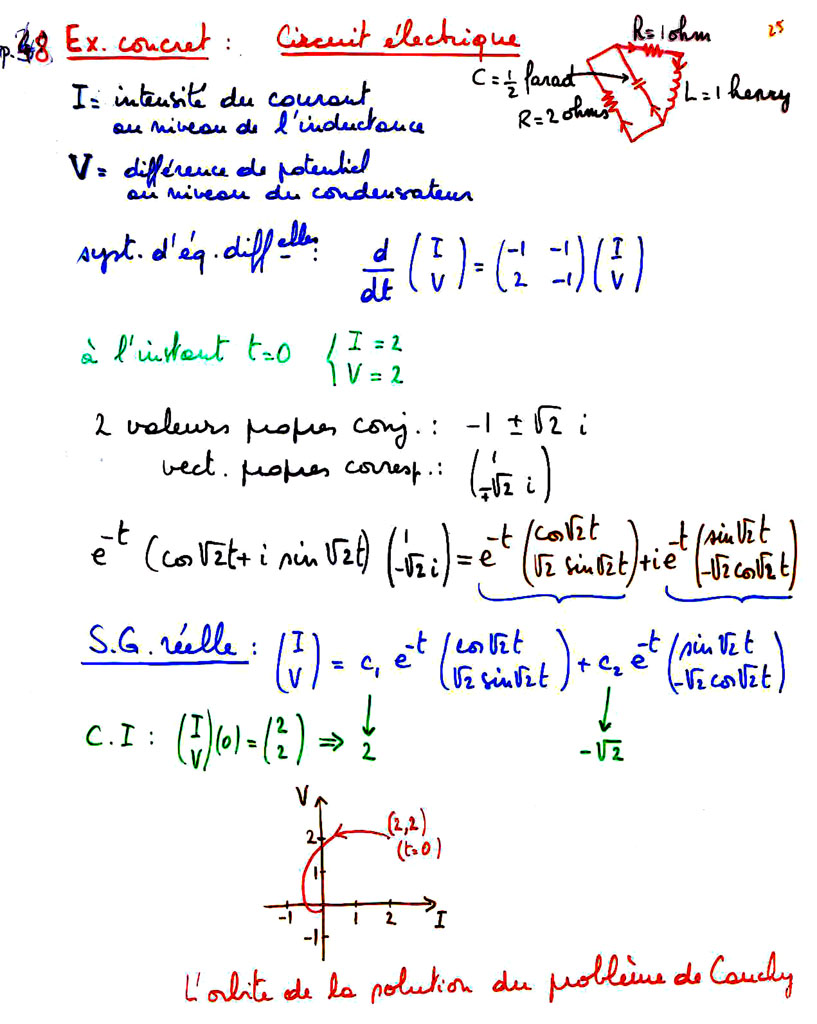 p. 48 Ex. concret : Circuit électrique
25
R=1 ohm
C = 1/2 farad
L=1 henry
R=2 ohms
I = intensité du courant
au niveau de l'inductance
V = différence de potentiel
au niveau du condensateur
syst. d'éq. diff elles : d/dt (I V) = (-1 -1 2 -1) (I V)
à l'instant t=0 { I = 2 V = 2
2 valeurs propres conj. : -1 ± √2 i
vect. propres corresp. : (1 ∓√2 i)
e^-t (cos √2t + i sin √2t) (1 -√2 i) = e^-t (cos √2t √2 sin √2t) + i e^-t (sin √2t -√2 cos √2t)
S.G. réelle : (I V) = c₁ e^-t (cos √2t √2 sin √2t) + c₂ e^-t (sin √2t -√2 cos √2t)
C.I : (I V)(0) = (2 2) ⇒ 2 -√2
V
(2,2)
(t=0)
2
1
-1 1 2 I
-1
L'orbite de la solution du problème de Cauchy